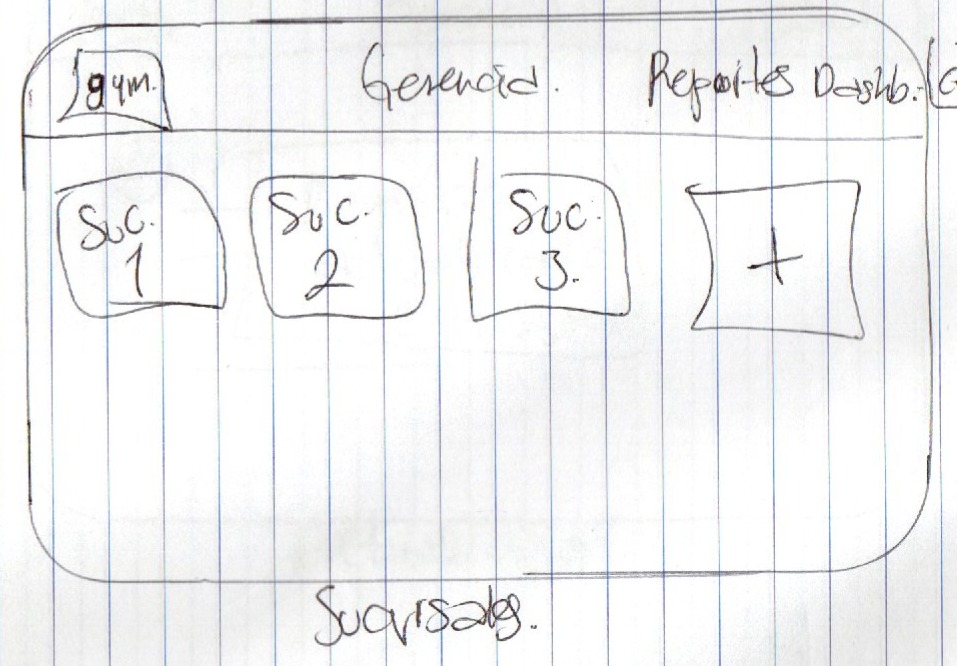 gym. Gerencia. Reportes Dashb.
Suc. Suc. Suc.
1 2 3. +
Sucursales.